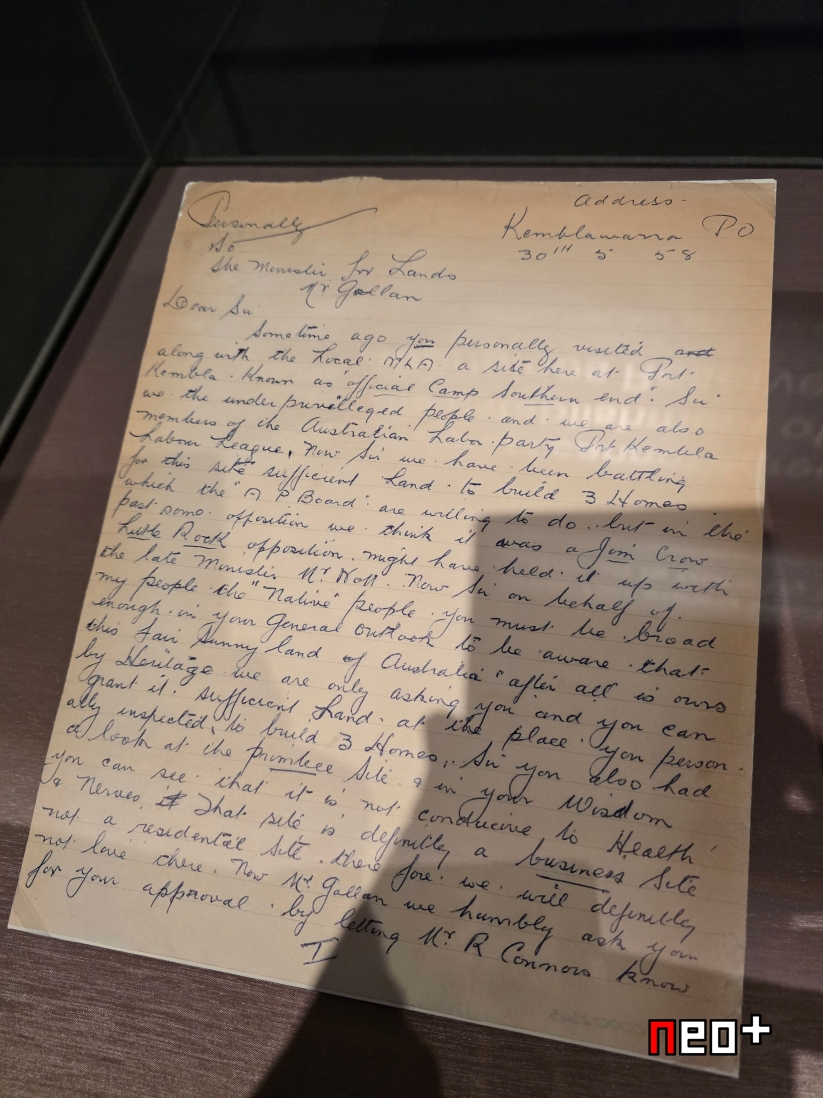 Personally
Address-
Kemblawarra PO
30TH 5 58
To
The Minister for Lands
Mr Gollan
Dear Sir
Sometime ago you personally visited and
along with the Local M L A. a site here at Port
Kembla. Known as "official Camp Southern end." Sir
we the underprivelleged people. and. we are also
members of the Australian Labor. party Port Kembla
Labour League. Now Sir we have been battling
for this site sufficient Land. to build 3 Homes
which the "A P Board" are willing to do.. but in the
past some opposition we think it was a Jim Crow
Little Rock opposition. might have held it up with
the late Minister Mr. Now Sir on behalf of.
my people the "Native" people you must be broad
enough in your General outlook to be aware that
this Fair Sunny land of Australia "after all is ours
by Heritage we are only asking you and you can
grant it. sufficient Land. at the place you person.
ally inspected, to build 3 Homes,. Sir you also had
a look at the Site. & in your Wisdom
you can see that it is not conducive to Health
& Nerves. That site is definitly a business Site
not a residental Site. there fore we will definitly
not love there. Now Mr. Gollan we humbly ask you
for your approval. by letting Mr. R Connors know
I
neo+